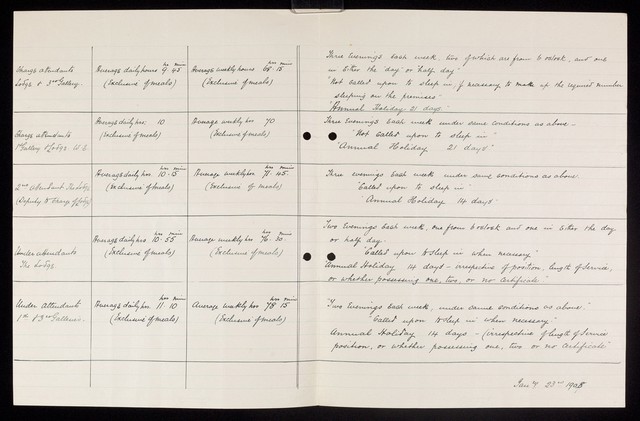 Charge attendants
Lodge & 3rd Gallery
Average daily hours hrs 9. mins 45
(Exclusive of meals)
Average weekly hours hrs 68. mins 15
(Exclusive of meals)
Three evenings each week, two of which are from 6 o'clock, and one
in either the day or half day
"Not called upon to sleep in, if necessary to make up the required number
sleeping on the premises"
"Annual Holiday 21 days."
Charge attendants
1st Gallery
Average daily hrs: 10
(Exclusive of meals)
Average weekly hrs 70
(Exclusive of meals)
Three Evenings each week under same conditions as above -
"Not called upon to sleep in"
"Annual Holiday 21 days"
2nd attendant The Lodge
(Deputy to Charge of Lodge)
Average daily hrs hrs 10. mins 15
(Exclusive of meals)
Average weekly hrs hrs 71. mins 45.
(Exclusive of meals)
Three evenings each week under same conditions as above.
"Called upon to sleep in"
"Annual Holiday 14 days"
Under attendants
The Lodge
Average daily hrs hrs 10. mins 55
(Exclusive of meals)
Average weekly hrs hrs 76. mins 30.
(Exclusive of meals)
Two Evenings each week, one from 6 o'clock and one in either the day
or half day.
"Called upon to sleep in when necessary"
Annual Holiday 14 days - irrespective of position, length of service,
or whether possessing one, two, or no certificate"
Under attendant
1st & 3rd Galleries.
Average daily hrs hrs 11. mins 10
(Exclusive of meals)
Average weekly hrs hrs 78 mins 15
(Exclusive of meals)
"Two Evenings each week, under same conditions as above."
"Called upon to sleep in when necessary"
Annual Holiday 14 days - (irrespective of length of service
position, or whether possessing one, two or no certificate"
Jany 23rd 1908